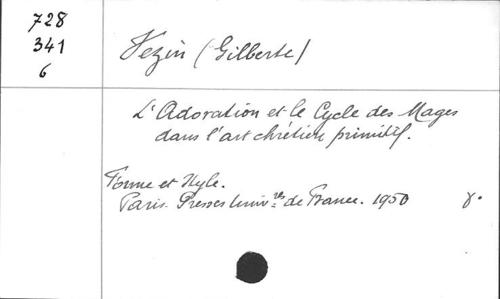 728
341
6
Vezin (Gilberte)
L'Adoration et le Cycle des Mages
dans l'art chrétien primitif.
Forme et Style.
Paris. Presses Univ.res de France. 1950 8°